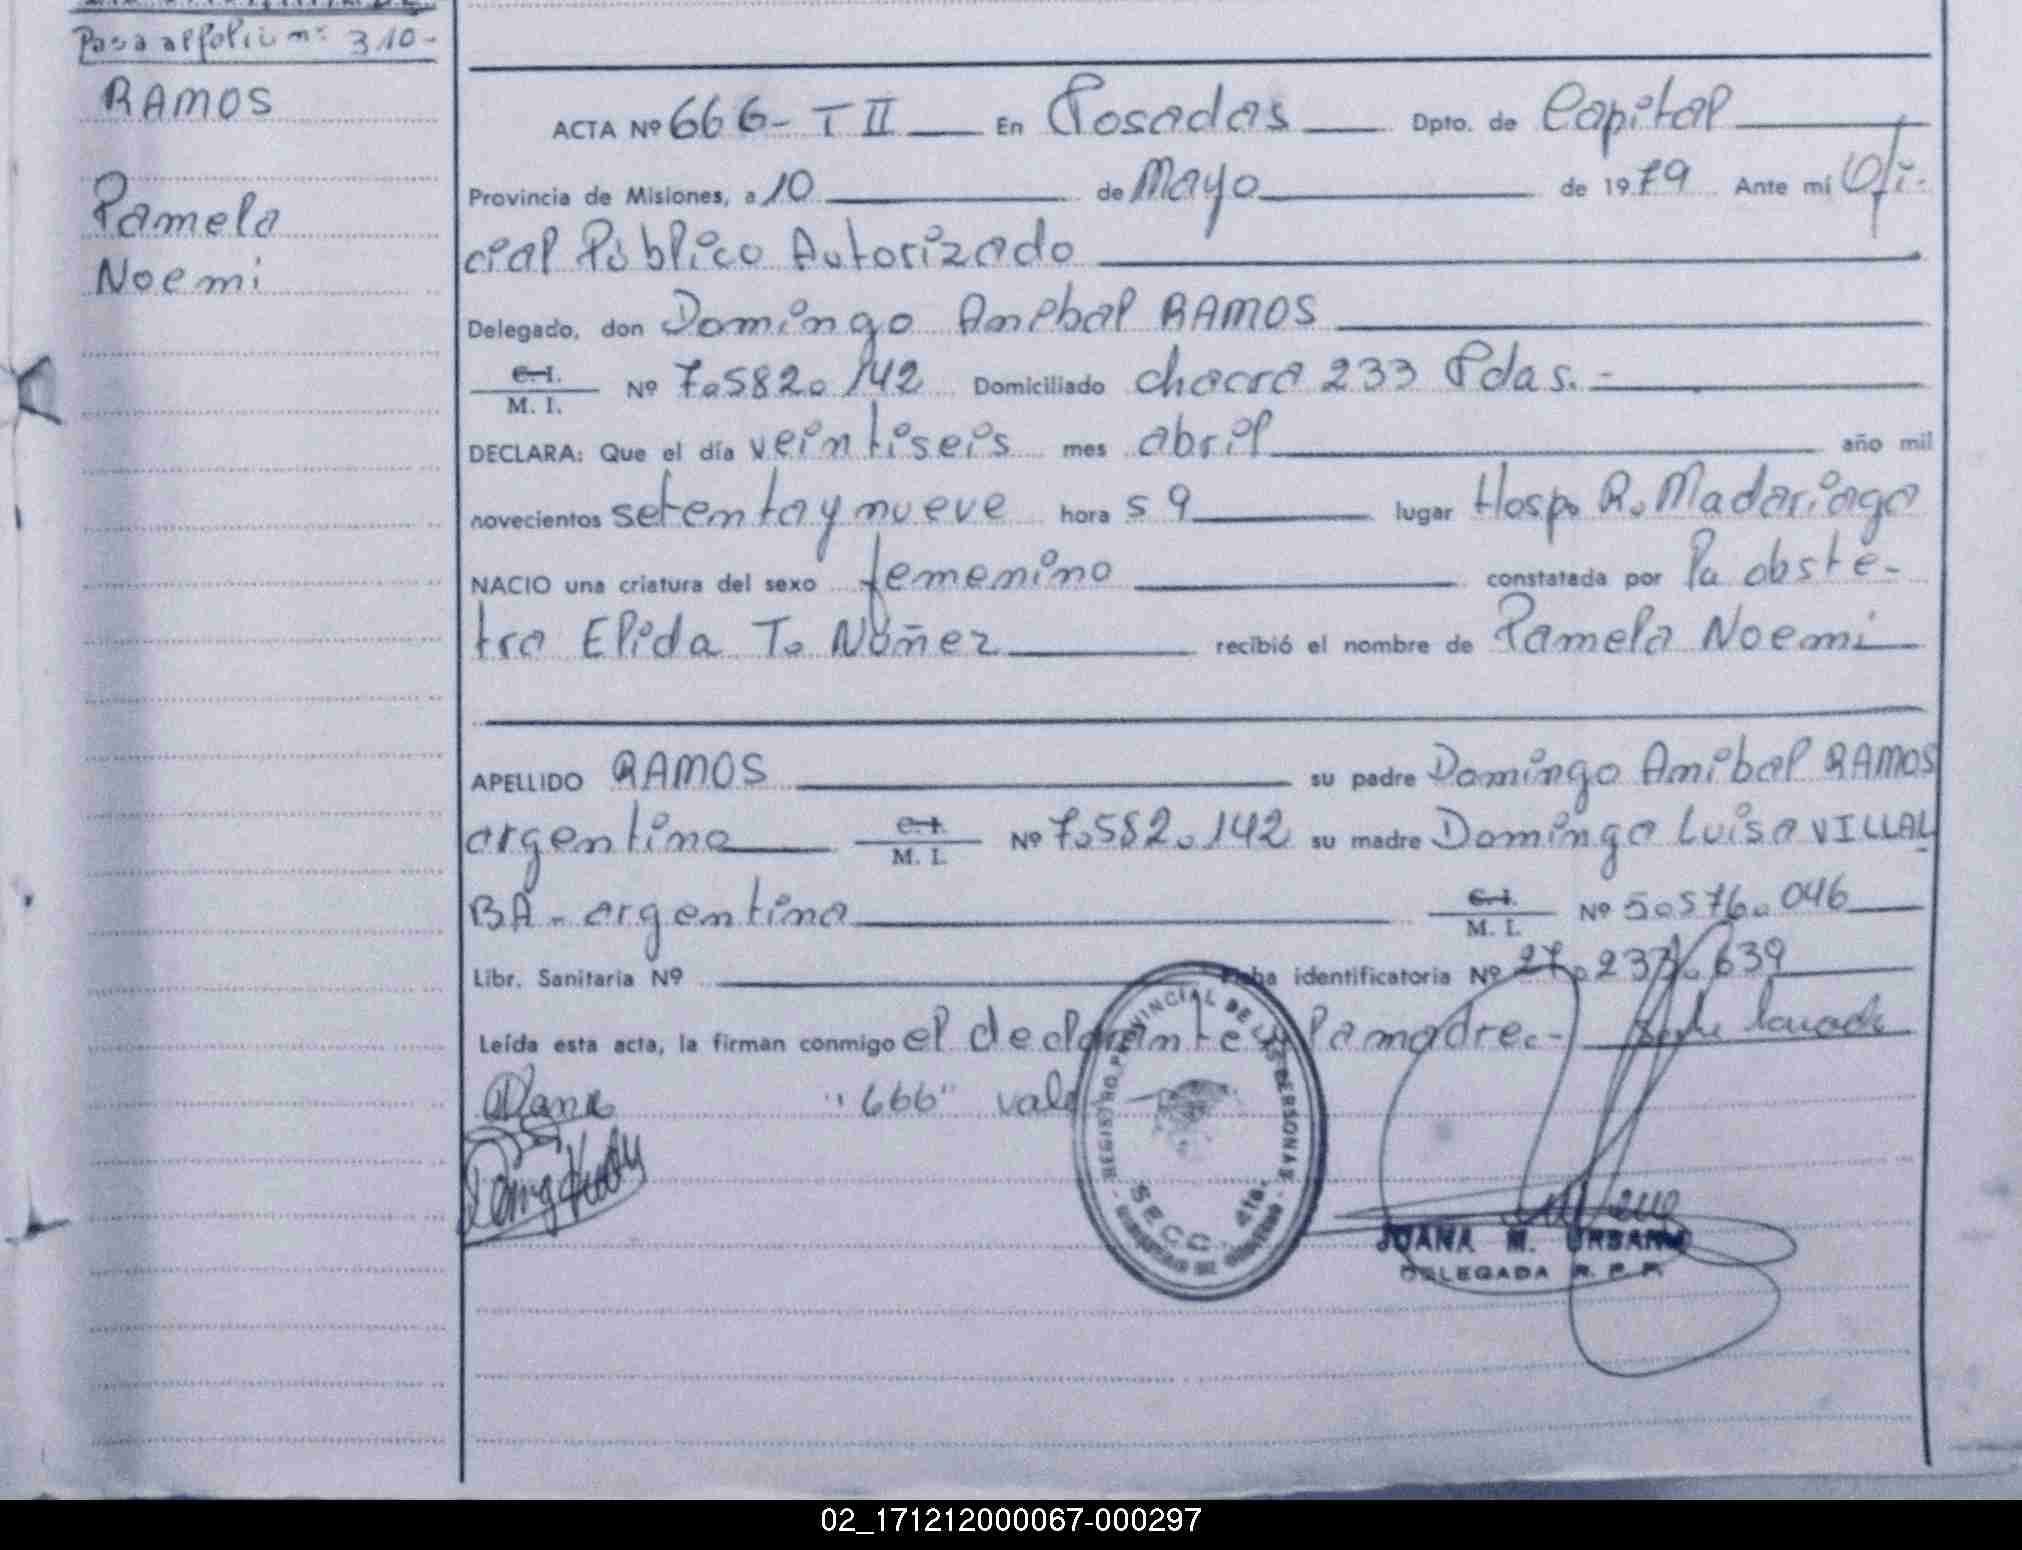 Pasa al folio nº 310-
RAMOS
Pamela
Noemi
ACTA Nº 666- T II En Posadas Dpto. de Capital
Provincia de Misiones, a 10 de Mayo de 1979 Ante mí Ofi-
cial Público Autorizado
Delegado, don Domingo Anibal RAMOS
C. I.
M. I. Nº 7.582.142 Domiciliado chacra 233 Pdas.-
DECLARA: Que el día veintiseis mes abril año mil
novecientos setenta y nueve hora s 9 lugar Hosp. R. Madariaga
NACIO una criatura del sexo femenino constatada por la obste-
tra Elida T. Núñez recibió el nombre de Pamela Noemi
APELLIDO RAMOS su padre Domingo Anibal RAMOS
argentino C. I.
M. I. Nº 7.582.142 su madre Dominga Luisa VILLAL
BA- argentina C. I.
M. I. Nº 5.576.046
Libr. Sanitaria Nº Ficha identificatoria Nº 27.237.639
Leída esta acta, la firman conmigo el declarante y la madre.-
"666" vale
REGISTRO PROVINCIAL DE LAS PERSONAS
SECC. 4ta.
JUANA M. URBANO
DELEGADA R. P. P.
02_171212000067-000297